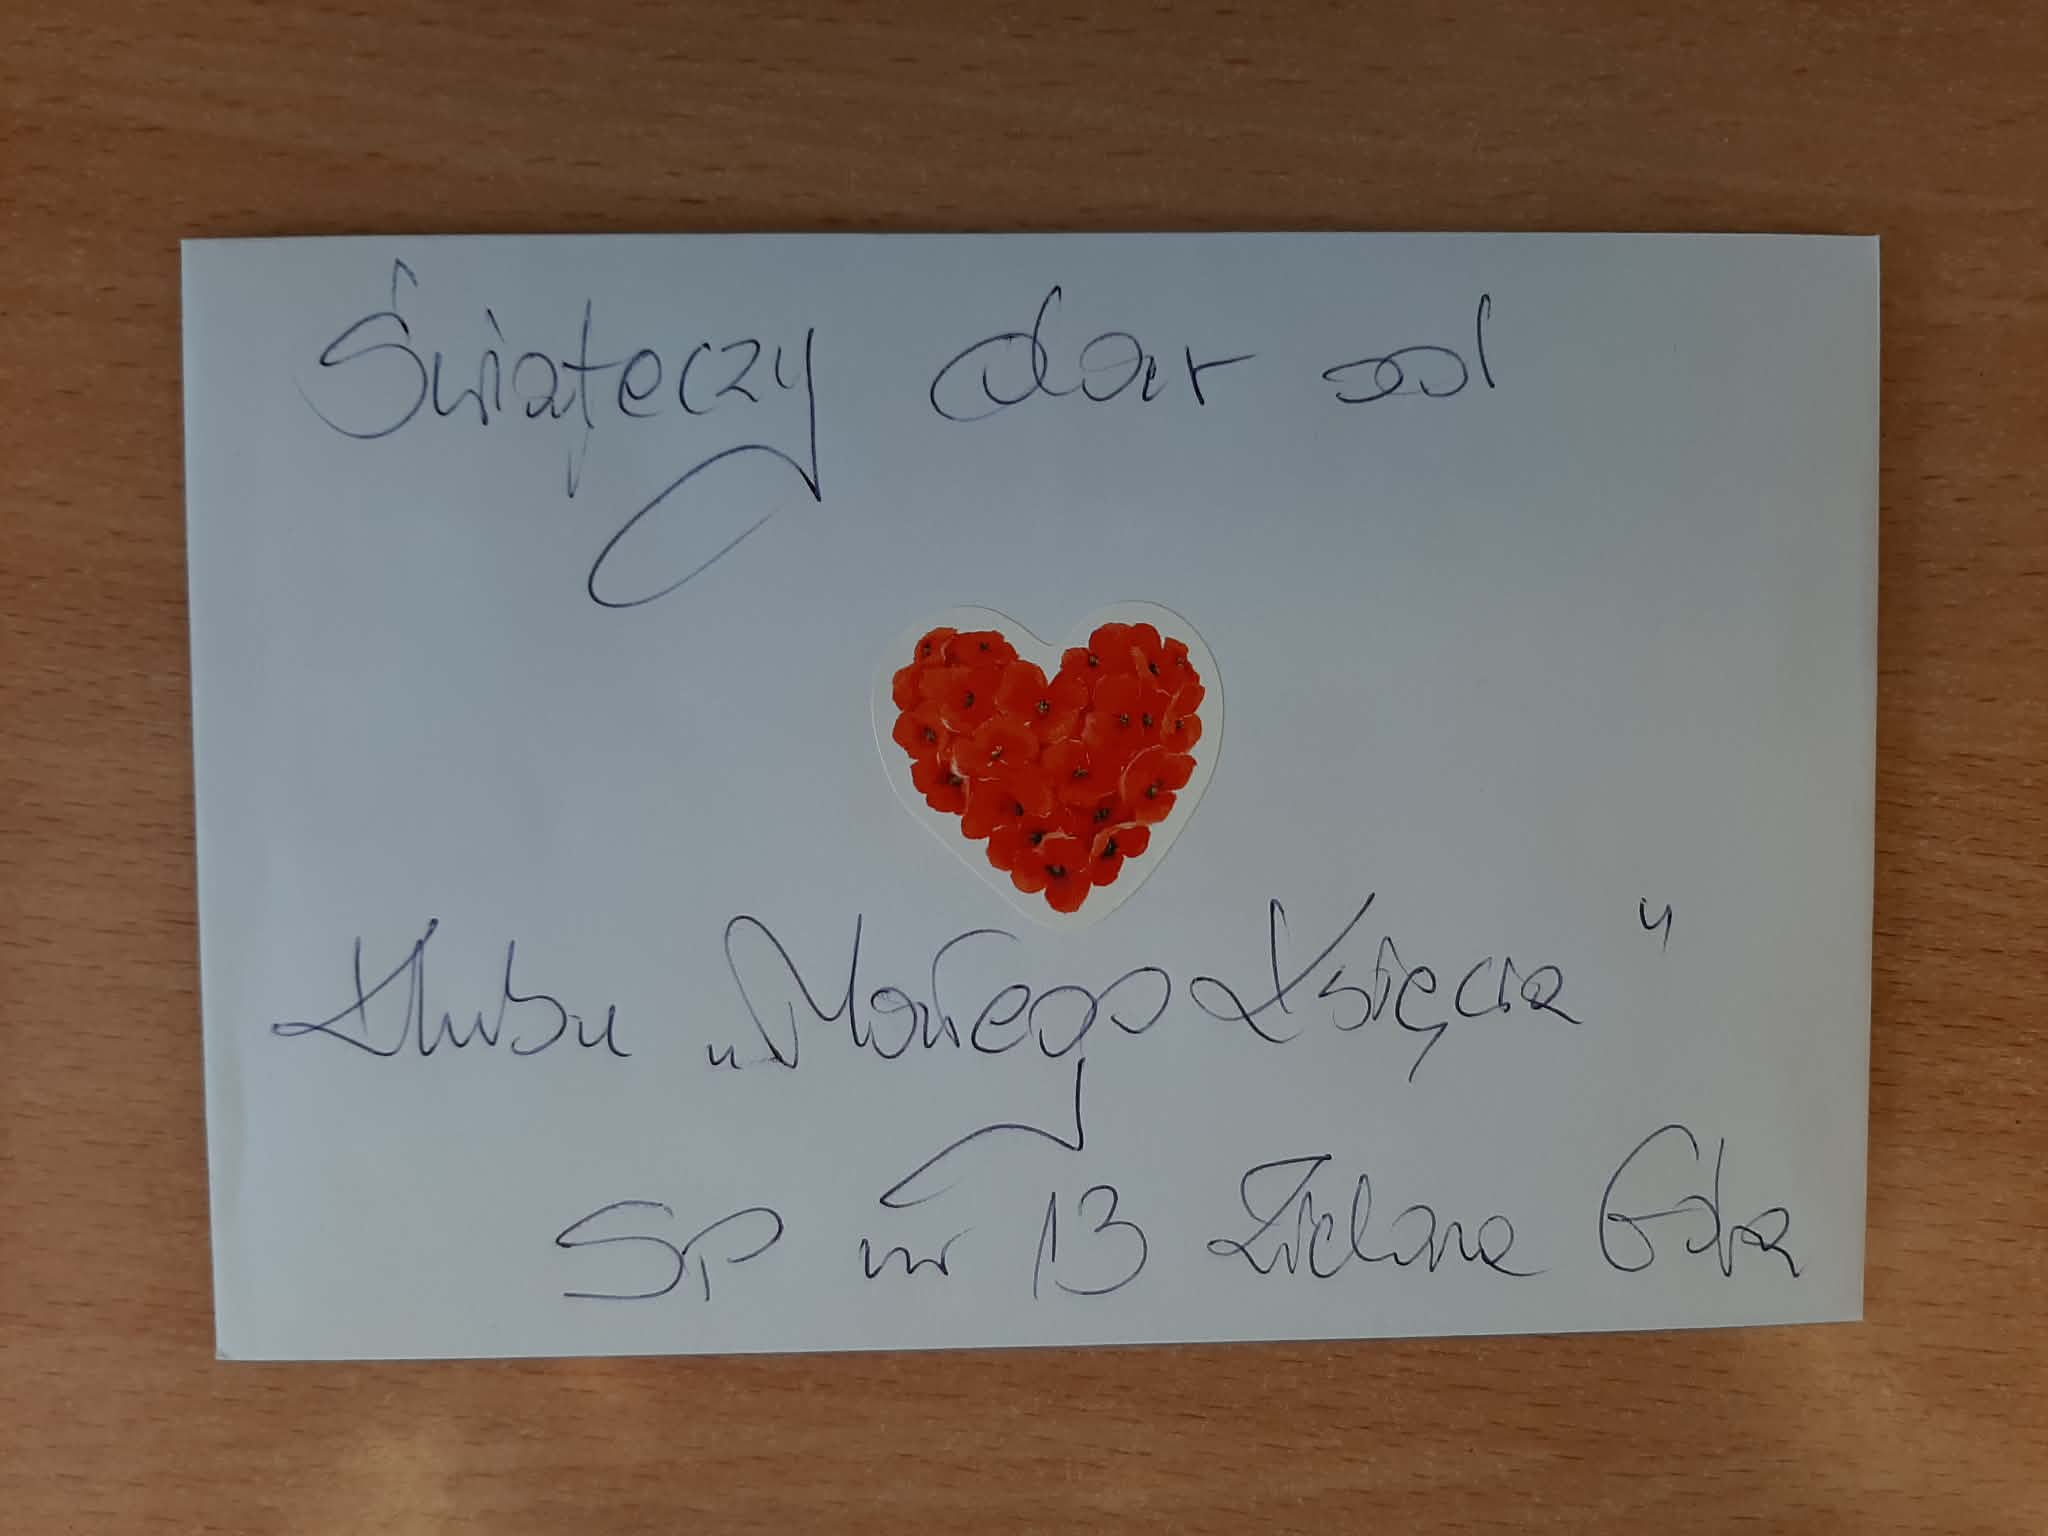 Świąteczy dar od
Klubu „Małego Księcia”
SP nr 13 Zielona Góra